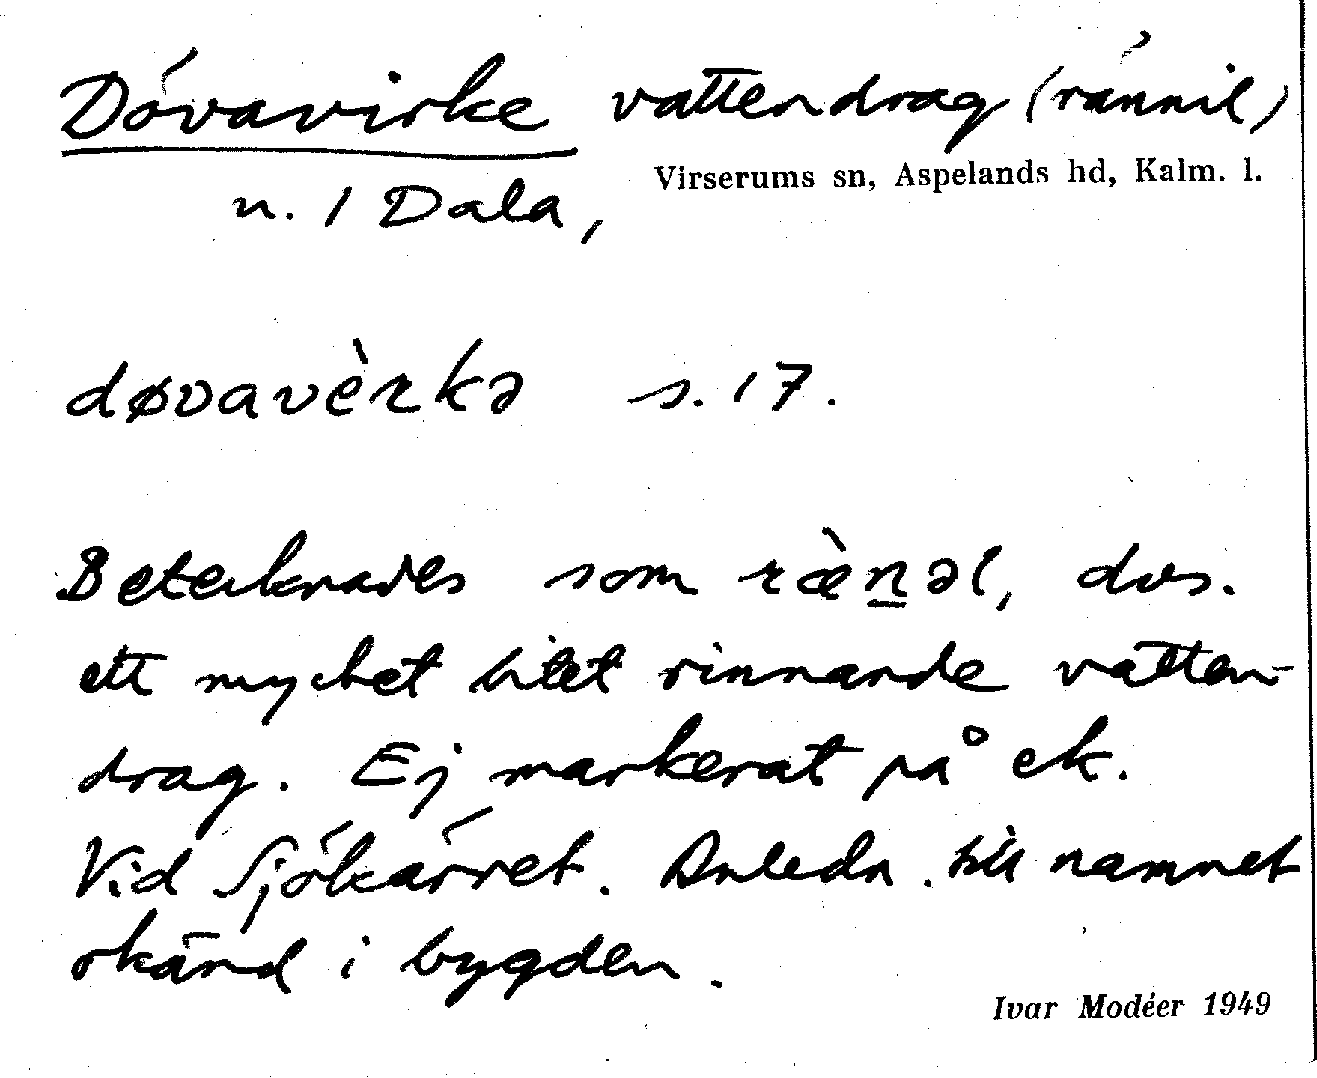 Dövavirke vattendrag (rännil)
Virserums sn, Aspelands hd, Kalm. l.
n. 1 Dala,
døvavèrkə s. 17.
Betecknades som ræ̀n̠əl, dvs.
ett mycket litet rinnande vatten-
drag. Ej markerat på ek.
Vid Sjökärret. Anledn. till namnet
okänd i bygden.
Ivar Modéer 1949